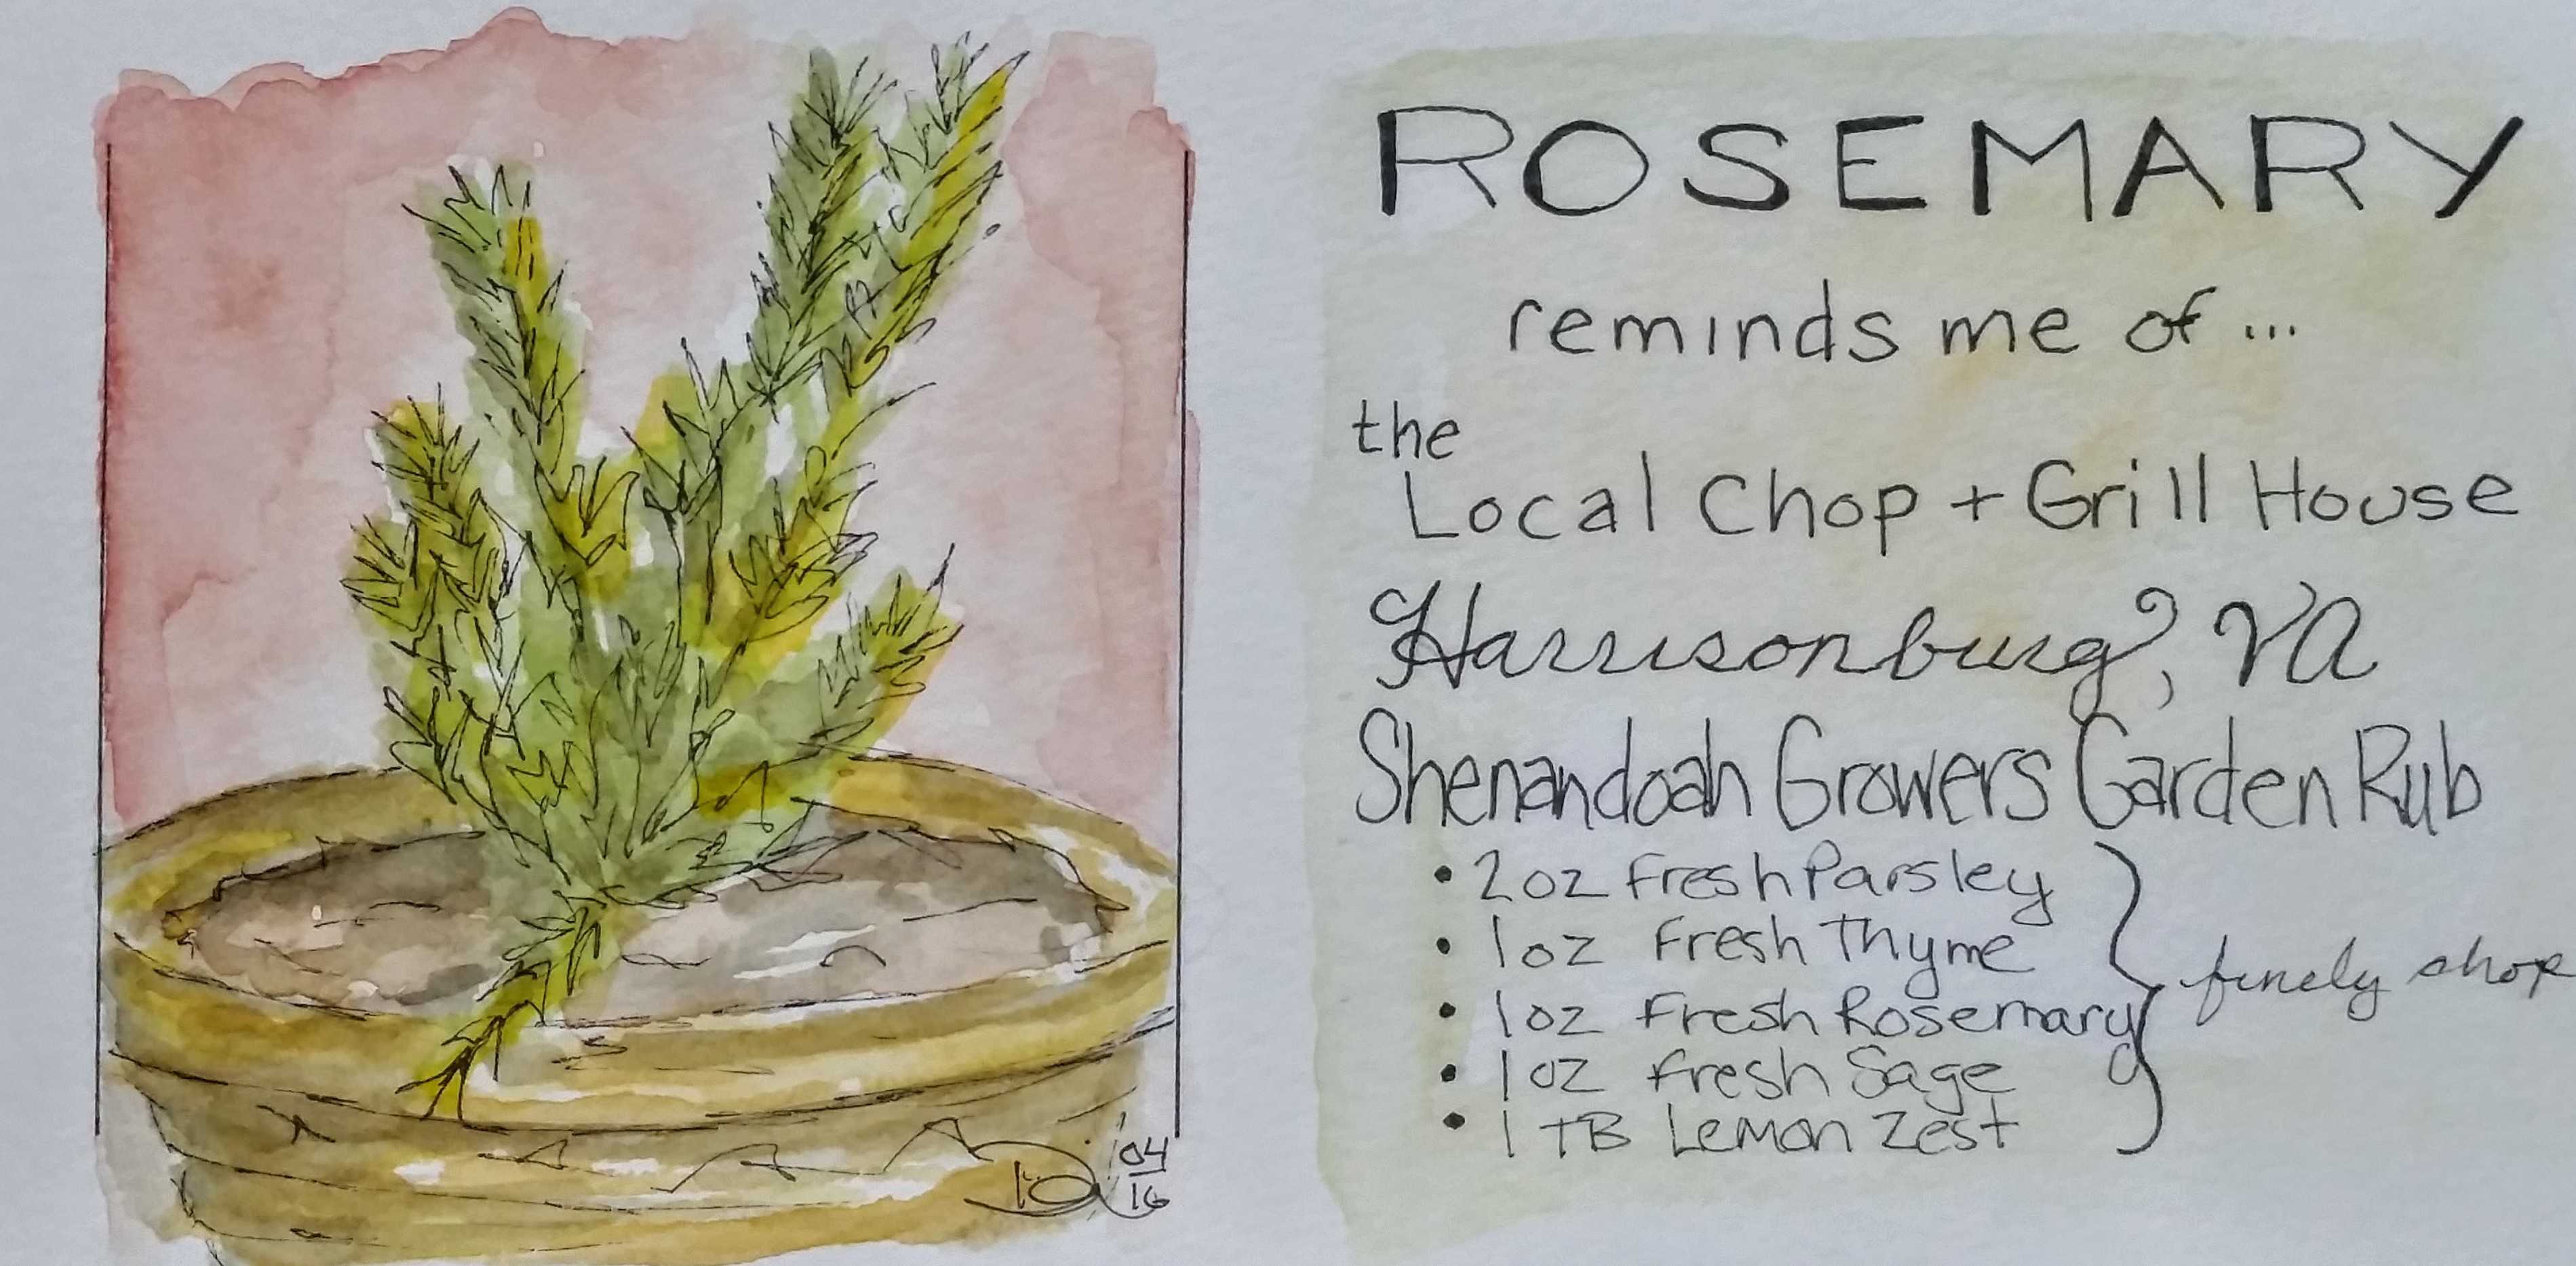 ROSEMARY
reminds me of ...
the
Local Chop + Grill House
Harrisonburg, VA
Shenandoah Growers Garden Rub
• 2oz Fresh Parsley
• 1oz Fresh Thyme
• 1oz Fresh Rosemary
• 1oz Fresh Sage
• 1 TB Lemon Zest
finely chop
04
16